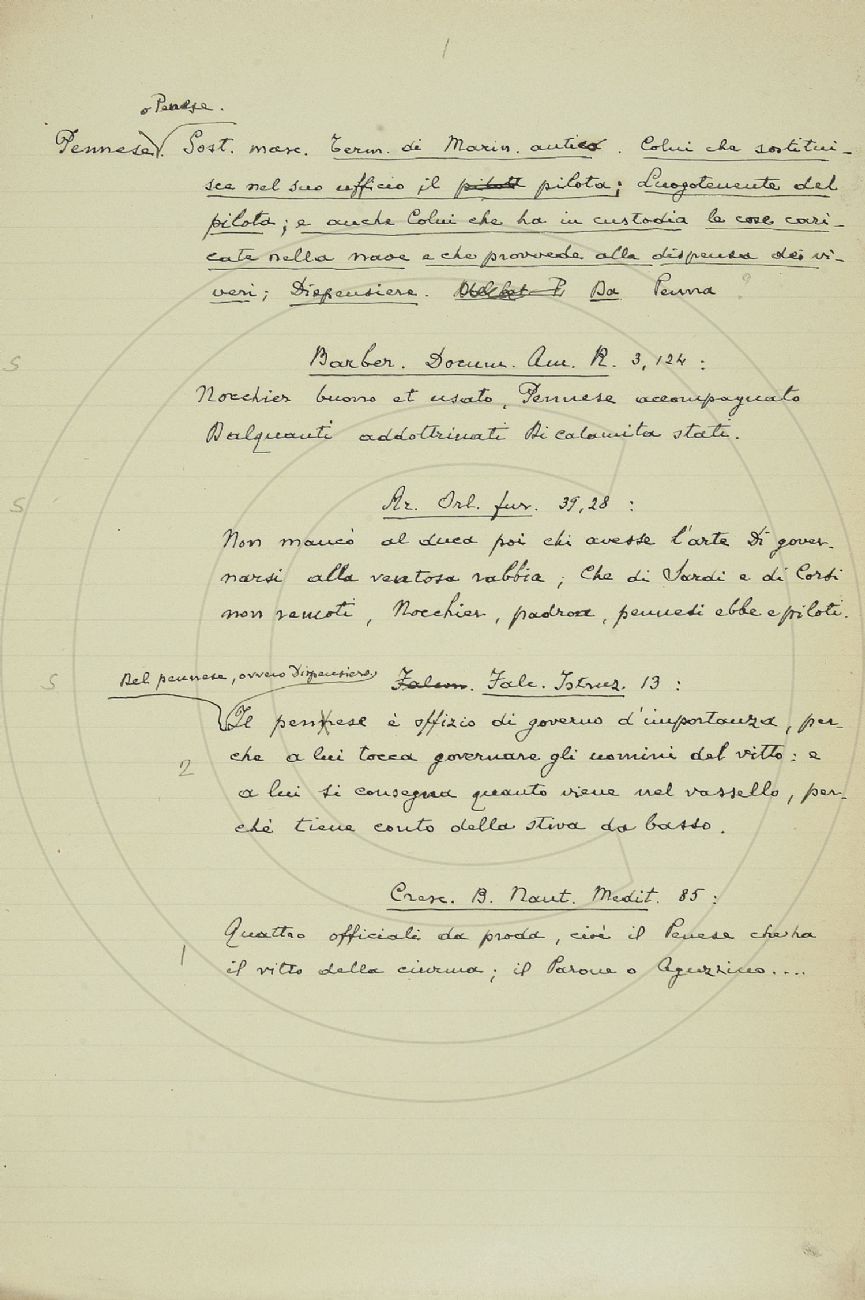 1
o Penese.
Pennese. Sost. masc. Term. di Marin. antico. Colui che sostitui-
sce nel suo ufficio il pilota; Luogotenente del
pilota; e anche Colui che ha in custodia le cose cari-
cate nella nave e che provvede alla dispensa dei vi-
veri; Dispensiere. Da Penna ?
S
Barber. Docum. Am. R. 3, 124 :
Nocchier buono et usato, Pennese accompagnato
Dalquanti addottrinati Di calamita stati.
S
Ar. Orl. fur. 39, 28 :
Non mancò al duca poi chi avesse l'arte Di gover-
narsi alla ventosa rabbia; Che di Sardi e di Corsi
non remoti, Nocchier, padron, pennesi ebbe e piloti.
S
Del pennese, ovvero Dispensiero,
Falc. Istruz. 13 :
Il penese è offizio di governo d'importanza, per-
che a lui tocca governare gli uomini del vitto: e
2
a lui si consegna quanto viene nel vassello, per-
chè tiene conto della stiva da basso.
Cresc. B. Naut. Medit. 85 :
Quattro officiali da proda, cioè il Penese che ha
1
il vitto della ciurma; il Parone o Aguzzino....